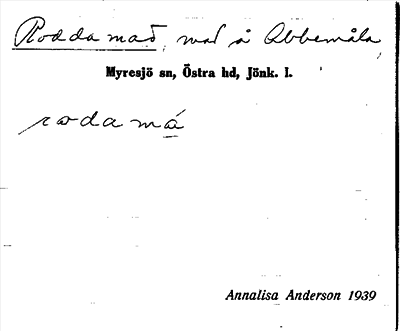 Rodda mad, mad å Abbemåla
Myresjö sn, Östra hd, Jönk. l.
rodamá
Annalisa Anderson 1939